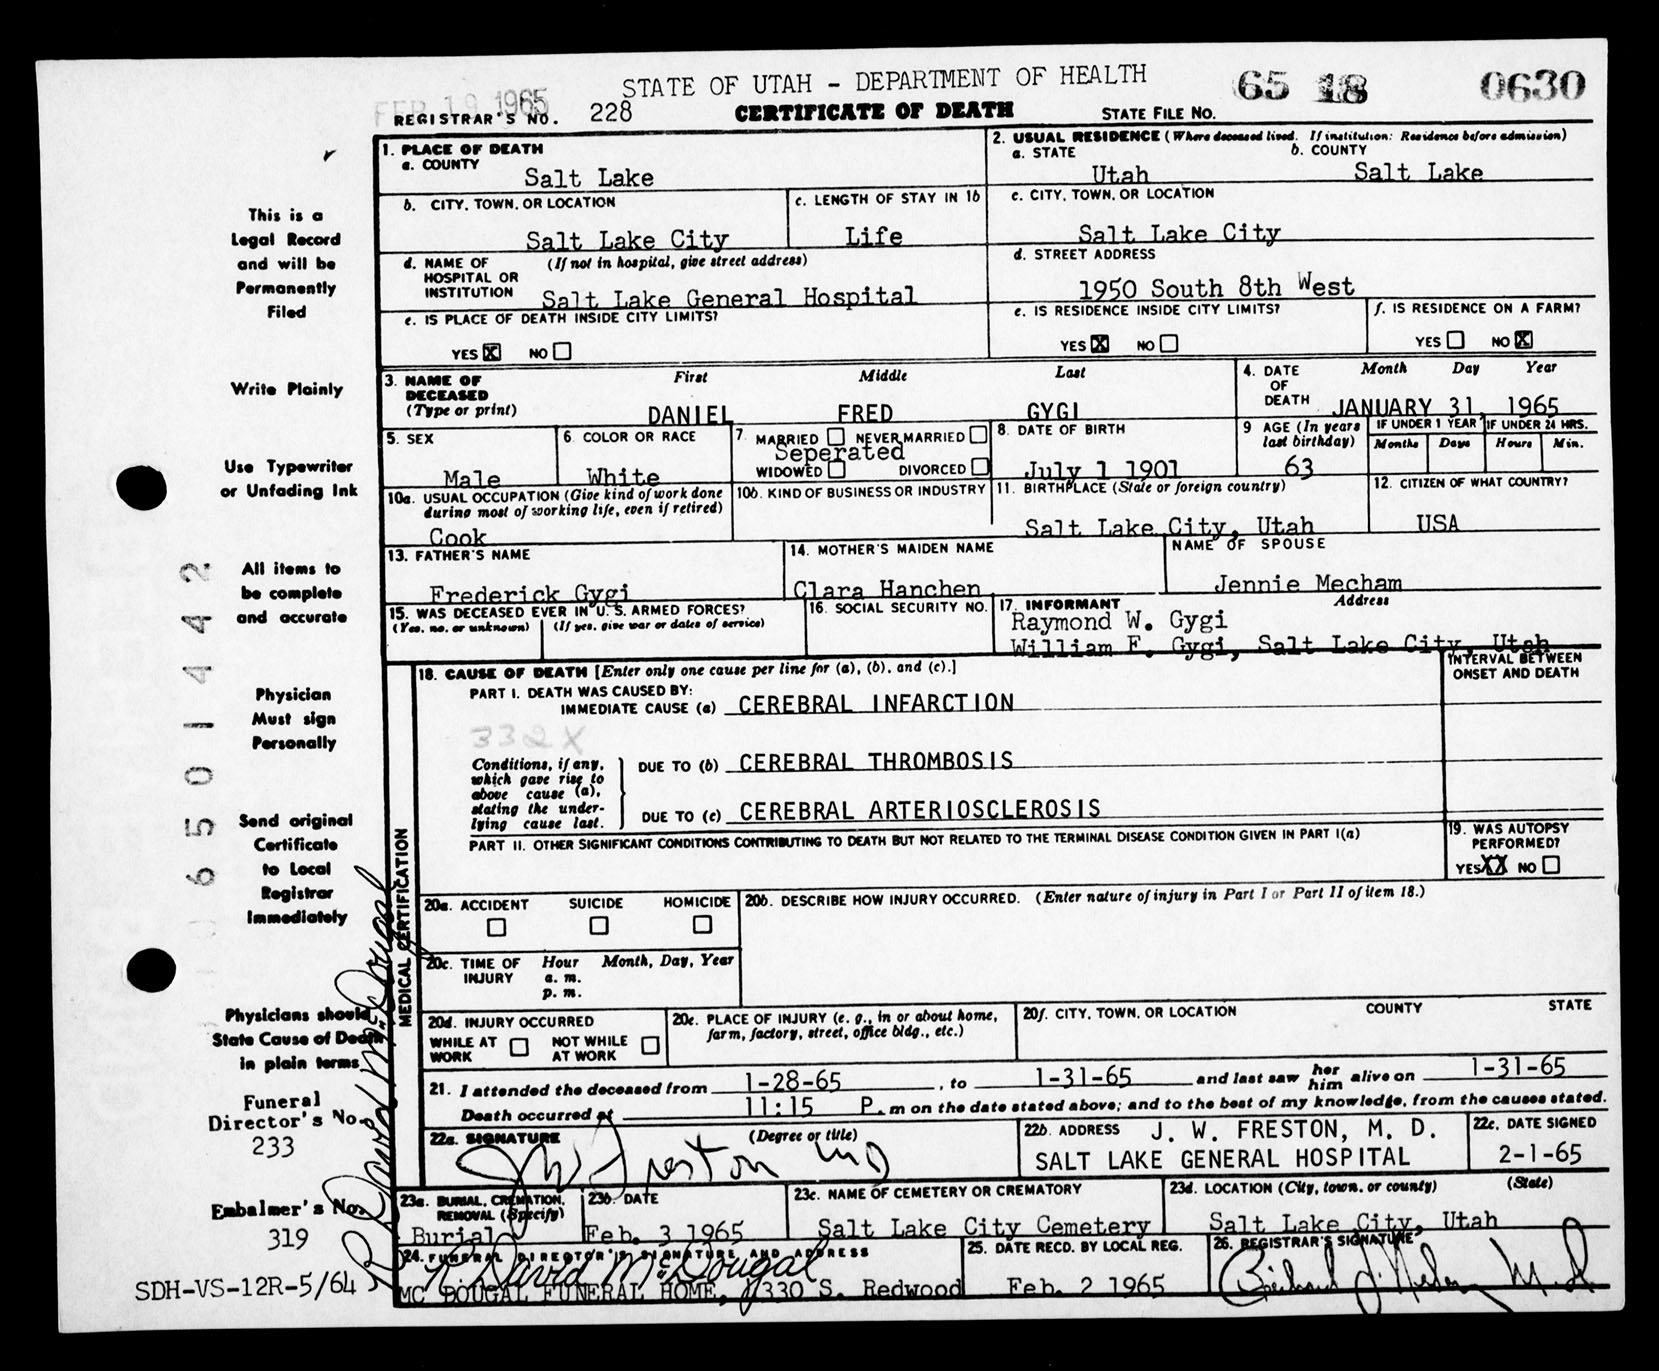 STATE OF UTAH - DEPARTMENT OF HEALTH
65 18 0630
FEB 19 1965
REGISTRAR'S NO. 228 CERTIFICATE OF DEATH STATE FILE NO.
1. PLACE OF DEATH
a. COUNTY
Salt Lake
2. USUAL RESIDENCE (Where deceased lived. If institution: Residence before admission)
a. STATE b. COUNTY
Utah Salt Lake
b. CITY, TOWN, OR LOCATION
Salt Lake City
c. LENGTH OF STAY IN 1b
Life
c. CITY, TOWN, OR LOCATION
Salt Lake City
d. NAME OF HOSPITAL OR INSTITUTION (If not in hospital, give street address)
Salt Lake General Hospital
d. STREET ADDRESS
1950 South 8th West
e. IS PLACE OF DEATH INSIDE CITY LIMITS?
YES X NO
e. IS RESIDENCE INSIDE CITY LIMITS?
YES X NO
f. IS RESIDENCE ON A FARM?
YES NO X
3. NAME OF DECEASED (Type or print)
First Middle Last
DANIEL FRED GYGI
4. DATE OF DEATH Month Day Year
JANUARY 31, 1965
5. SEX
Male
6. COLOR OR RACE
White
7. MARRIED NEVER MARRIED
Seperated
WIDOWED DIVORCED
8. DATE OF BIRTH
July 1 1901
9 AGE (In years last birthday)
63
IF UNDER 1 YEAR IF UNDER 24 HRS.
Months Days Hours Min.
10a. USUAL OCCUPATION (Give kind of work done during most of working life, even if retired)
Cook
10b. KIND OF BUSINESS OR INDUSTRY
11. BIRTHPLACE (State or foreign country)
Salt Lake City, Utah
12. CITIZEN OF WHAT COUNTRY?
USA
13. FATHER'S NAME
Frederick Gygi
14. MOTHER'S MAIDEN NAME
Clara Hanchen
NAME OF SPOUSE
Jennie Mecham
15. WAS DECEASED EVER IN U. S. ARMED FORCES?
(Yes, no, or unknown) (If yes, give war or dates of service)
16. SOCIAL SECURITY NO.
17. INFORMANT Address
Raymond W. Gygi
William F. Gygi, Salt Lake City, Utah
MEDICAL CERTIFICATION
18. CAUSE OF DEATH [Enter only one cause per line for (a), (b), and (c).]
INTERVAL BETWEEN ONSET AND DEATH
PART I. DEATH WAS CAUSED BY:
IMMEDIATE CAUSE (a) CEREBRAL INFARCTION
332X
Conditions, if any, which gave rise to above cause (a), stating the underlying cause last.
DUE TO (b) CEREBRAL THROMBOSIS
DUE TO (c) CEREBRAL ARTERIOSCLEROSIS
PART II. OTHER SIGNIFICANT CONDITIONS CONTRIBUTING TO DEATH BUT NOT RELATED TO THE TERMINAL DISEASE CONDITION GIVEN IN PART I(a)
19. WAS AUTOPSY PERFORMED?
YES XX NO
20a. ACCIDENT SUICIDE HOMICIDE
20b. DESCRIBE HOW INJURY OCCURRED. (Enter nature of injury in Part I or Part II of item 18.)
20c. TIME OF INJURY Hour Month, Day, Year
a. m.
p. m.
20d. INJURY OCCURRED
WHILE AT WORK NOT WHILE AT WORK
20e. PLACE OF INJURY (e. g., in or about home, farm, factory, street, office bldg., etc.)
20f. CITY, TOWN, OR LOCATION COUNTY STATE
21. I attended the deceased from 1-28-65, to 1-31-65 and last saw her him alive on 1-31-65
Death occurred at 11:15 P. m on the date stated above; and to the best of my knowledge, from the causes stated.
22a. SIGNATURE (Degree or title)
J W Freston MD
22b. ADDRESS J. W. FRESTON, M. D.
SALT LAKE GENERAL HOSPITAL
22c. DATE SIGNED
2-1-65
23a. BURIAL, CREMATION, REMOVAL (Specify)
Burial
23b. DATE
Feb. 3 1965
23c. NAME OF CEMETERY OR CREMATORY
Salt Lake City Cemetery
23d. LOCATION (City, town, or county) (State)
Salt Lake City, Utah
24. FUNERAL DIRECTOR'S SIGNATURE AND ADDRESS
R David McDougal
MC DOUGAL FUNERAL HOME, 4330 S. Redwood
25. DATE RECD. BY LOCAL REG.
Feb. 2 1965
26. REGISTRAR'S SIGNATURE
This is a
Legal Record
and will be
Permanently
Filed
Write Plainly
Use Typewriter
or Unfading Ink
All items to
be complete
and accurate
Physician
Must sign
Personally
Send original
Certificate
to Local
Registrar
Immediately
Physicians should
State Cause of Death
in plain terms
Funeral
Director's No.
233
Embalmer's No.
319
SDH-VS-12R-5/64
R David McDougal
0 6 5 0 1 4 4 2